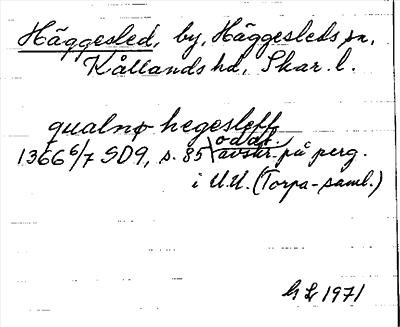 Häggesled, by, Häggesleds sn,
Kållands hd, Skar. l.
qualnø hegesleff
odat.
1366 6/7 SD9, s. 85 avskr. på perg.
i U.U. (Torpa-saml.)
1971